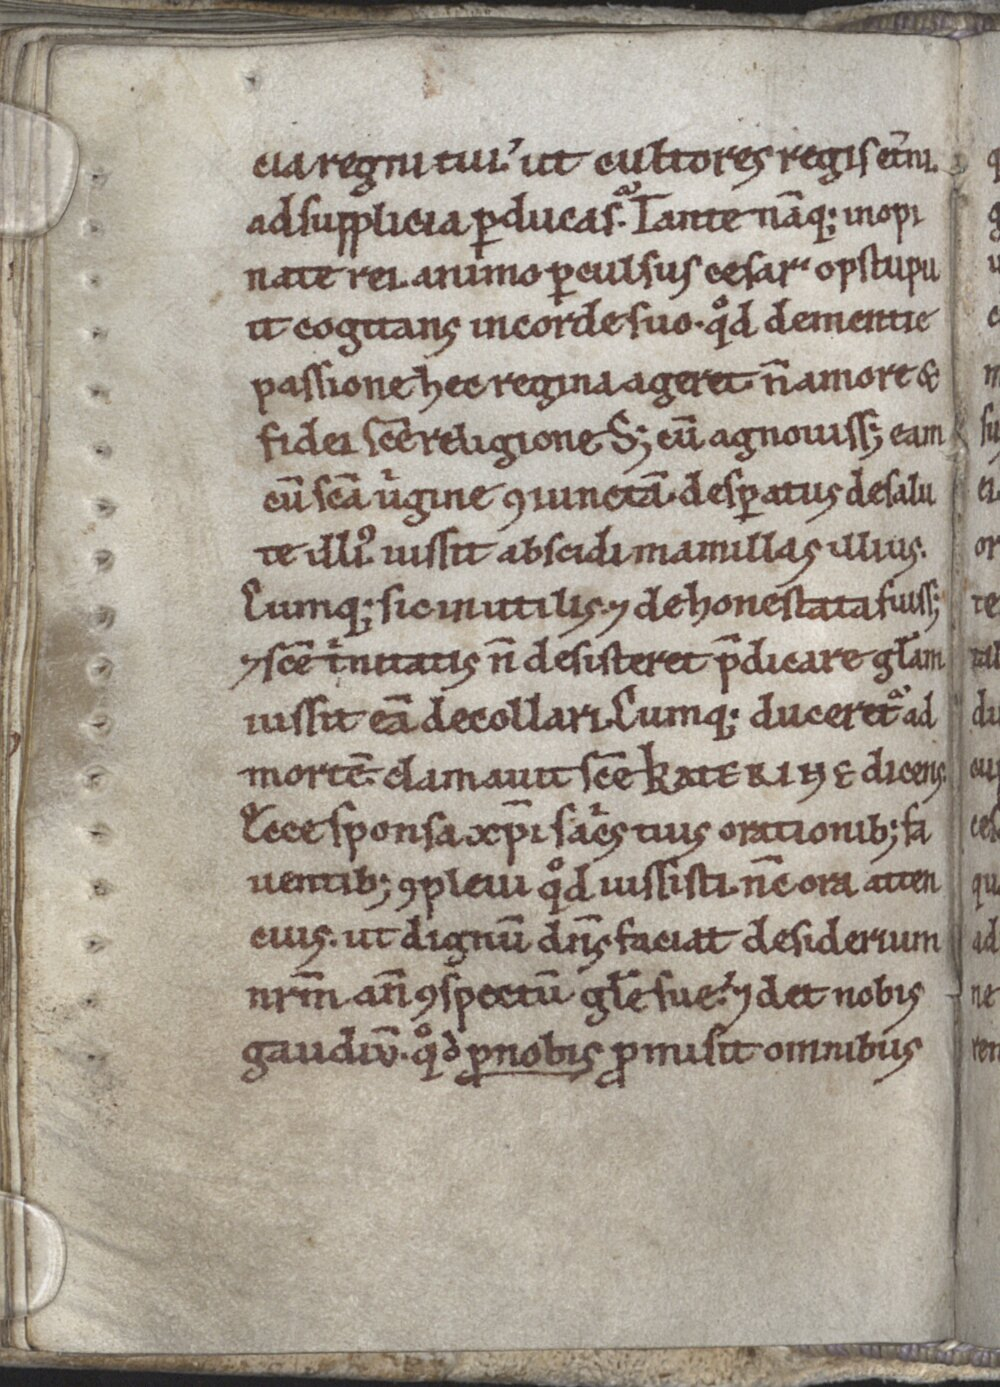 cia regni tui.ʼ ut cultores regis et̄ni.
ad supplicia ꝑducas. Tante nāq; inopi
nate rei. animo ꝑculsus cesar opstupu
it cogitans in corde suo. qͦd dementie
passione hec regina ageret. n̄ amore &
fidei sc̄e religione. S; cū agnouiss; eam
cū sc̄a uͥgine ꝯiunctā. desꝑatus de salu
te illiꝰ. iussit abscidi mamillas illius.
Cumq; sic inutilis. ⁊ dehonestata fuiss;
⁊ sc̄e tͥnitatis n̄ desisteret p̄dicare gl̄am
iussit eā decollari. Cumq; duceret᷑ ad
mortē. clamauit sc̄e KATERINE dicens.
Ecce sponsa xp̄i sac̄s tuis orationib; fa
uentib; ꝯpleui qͦd iussisti. nc̄ ora atten
cius. ut dignū dn̄s faciat desiderium
nrm̄. an̄ ꝯspectū gl̄e sue.ʼ ⁊ det nobis
gaudiū. qͦd ꝓ nobis ꝓmisit omnibus